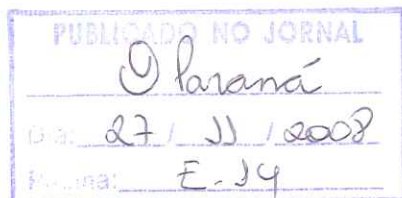 PUBLICADO NO JORNAL
O Paraná
Dia: 27 / 11 / 2008
Página: E-14